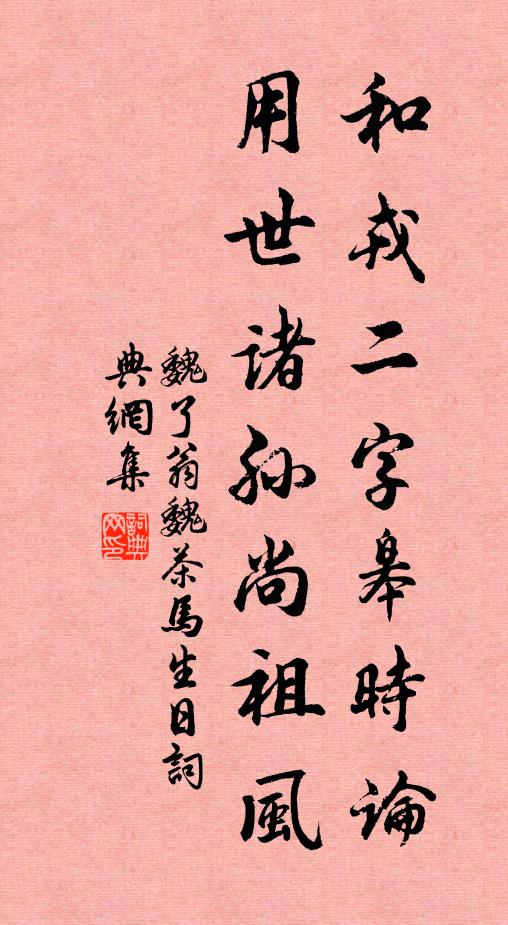 和戎二字皋時論
用世诸孙尚祖風
魏了翁魏茶馬生日詞
典網集
詞典
网印